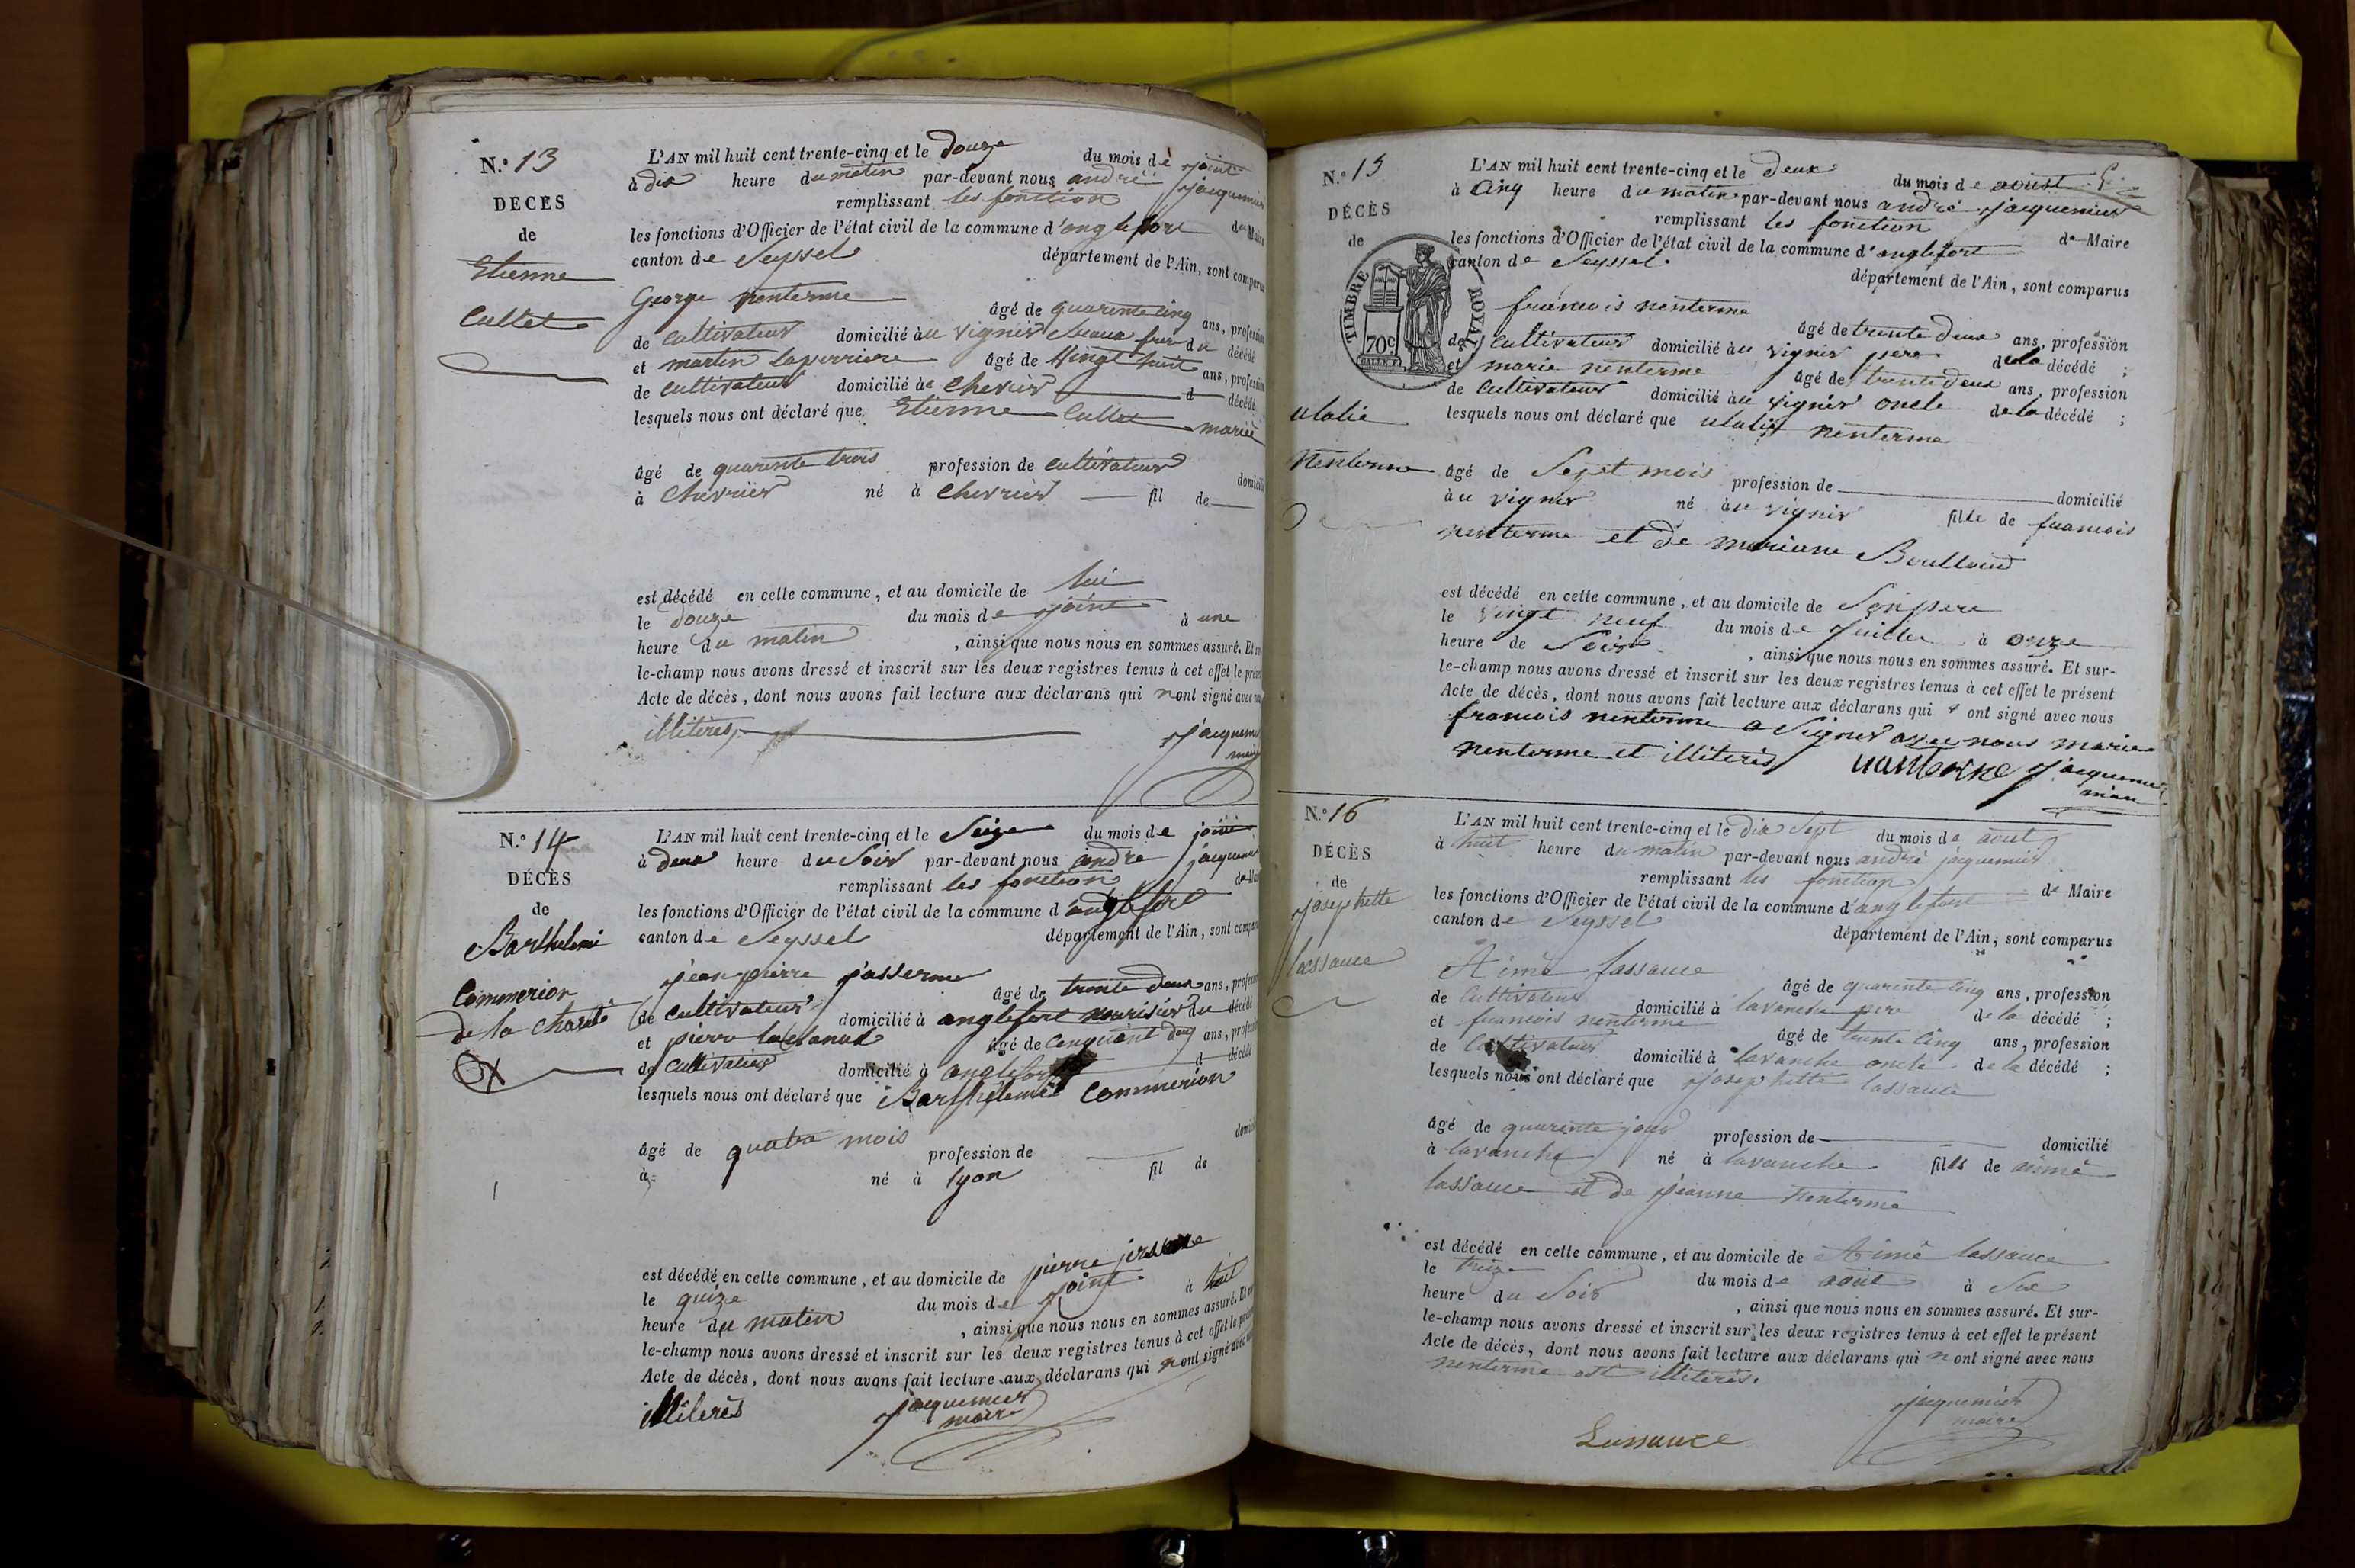 N.º 13
DÉCÈS
de
Etienne
Cullet
L'AN mil huit cent trente-cinq et le douze du mois de
à dix heure du matin par-devant nous andré jacquemier
remplissant les fonction de Maire
les fonctions d'Officier de l'état civil de la commune d'anglefort
canton de Seyssel département de l'Ain, sont comparus
George nenterme âgé de quarente cinq ans, profession
de cultivateur domicilié au vignier beaux frer du décédé
et martin laperriere âgé de vingt huit ans, profession
de cultivateur domicilié à Chevrier d décédé
lesquels nous ont déclaré que Etienne Cullet marié
âgé de quarente trois profession de cultivateur domicilié
à Chevrier né à Chevrier fil de
est décédé en cette commune, et au domicile de lui
le douze du mois de à une
heure du matin, ainsi que nous nous en sommes assuré. Et
le-champ nous avons dressé et inscrit sur les deux registres tenus à cet effet le présent
Acte de décès, dont nous avons fait lecture aux déclarans qui n'ont signé avec nous
illiterès, jacquemier
maire
N.º 14
DÉCÈS
de
Barthelemi
Commerion
de la charité
L'AN mil huit cent trente-cinq et le Seize du mois de
à deux heure du Soir par-devant nous andre jacquemier
remplissant les fonction de Maire
les fonctions d'Officier de l'état civil de la commune d'anglefort
canton de Seyssel département de l'Ain, sont comparus
jean pierre âgé de trente deux ans, profession
de cultivateur domicilié à anglefort nourisier du décédé
et pierre âgé de cenquante deux ans, profession
de cultivateur domicilié à anglefort d décédé
lesquels nous ont déclaré que Barthelemie Commerion
âgé de quatre mois profession de domicilié
à né à lyon fil de
est décédé en cette commune, et au domicile de pierre
le quize du mois de à huit
heure du matin, ainsi que nous nous en sommes assuré. Et
le-champ nous avons dressé et inscrit sur les deux registres tenus à cet effet le présent
Acte de décès, dont nous avons fait lecture aux déclarans qui n'ont signé avec
illiterès jacquemier
maire
N.º 15
DÉCÈS
de
TIMBRE ROYAL
70c
ulalie
Nenterme
L'AN mil huit cent trente-cinq et le deux du mois de aoust
à cinq heure du matin par-devant nous andré jacquemier
remplissant les fonction de Maire
les fonctions d'Officier de l'état civil de la commune d'anglefort
canton de Seyssel département de l'Ain, sont comparus
francois nenterme âgé de trente deux ans, profession
de cultivateur domicilié au vignier pere de la décédé ;
et marie nenterme âgé de trente deux ans, profession
de cultivateur domicilié au vignier oncle de la décédé ;
lesquels nous ont déclaré que ulalie nenterme
âgé de Sept mois profession de domicilié
àu vignier né àu vignier fille de francois
nenterme et de mariane Boulloud
est décédé en cette commune, et au domicile de Son pere
le vingt neuf du mois de juillet à onze
heure de Soir, ainsi que nous nous en sommes assuré. Et sur-
le-champ nous avons dressé et inscrit sur les deux registres tenus à cet effet le présent
Acte de décès, dont nous avons fait lecture aux déclarans qui ont signé avec nous
francois nenterme a Signer avec nous marie
nenterme et illiterès nanterme jacquemier
maire
N.º 16
DÉCÈS
de
josephette
lassauce
L'AN mil huit cent trente-cinq et le dix Sept du mois de aout
à huit heure du matin par-devant nous andré jacquemier
remplissant les fonction de Maire
les fonctions d'Officier de l'état civil de la commune d'anglefort
canton de Seyssel département de l'Ain, sont comparus
Aimé lassauce âgé de quarente cinq ans, profession
de cultivateur domicilié à lavanche pere de la décédé ;
et francois nenterme âgé de trente cinq ans, profession
de cultivateur domicilié à lavanche oncle de la décédé ;
lesquels nous ont déclaré que josephette lassauce
âgé de quarente jour profession de domicilié
à lavanche né à lavanche fille de aimé
lassauce et de jeanne nenterme
est décédé en cette commune, et au domicile de Aimé lassauce
le treize du mois de aout à Six
heure du Soir, ainsi que nous nous en sommes assuré. Et sur-
le-champ nous avons dressé et inscrit sur les deux registres tenus à cet effet le présent
Acte de décès, dont nous avons fait lecture aux déclarans qui n ont signé avec nous
nenterme est illiterès. jacquemier
maire
Lassauce